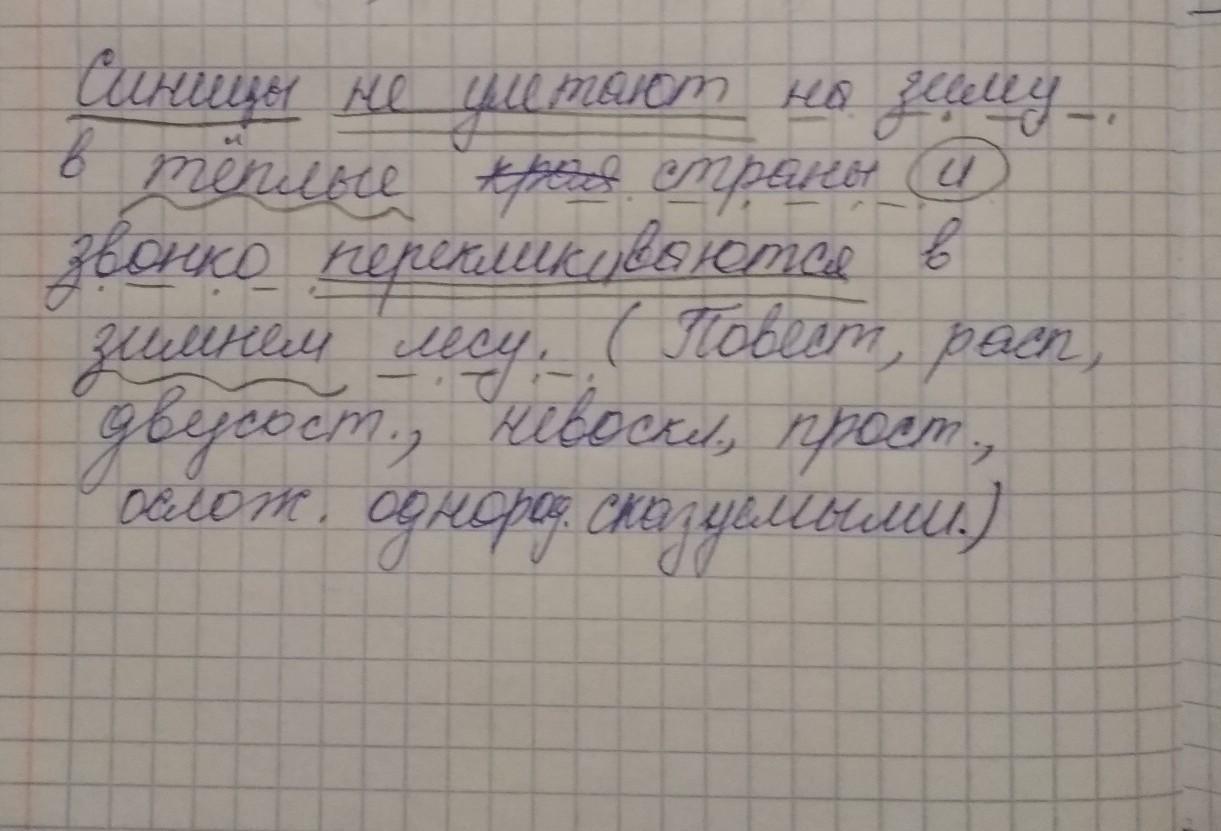 Синицы не улетают на зиму
в тёплые края страны и
звонко перекликиваются в
зимнем лесу. (Повест, расп,
двусост., невоскл., прост.,
ослож. однород. сказуемыми.)